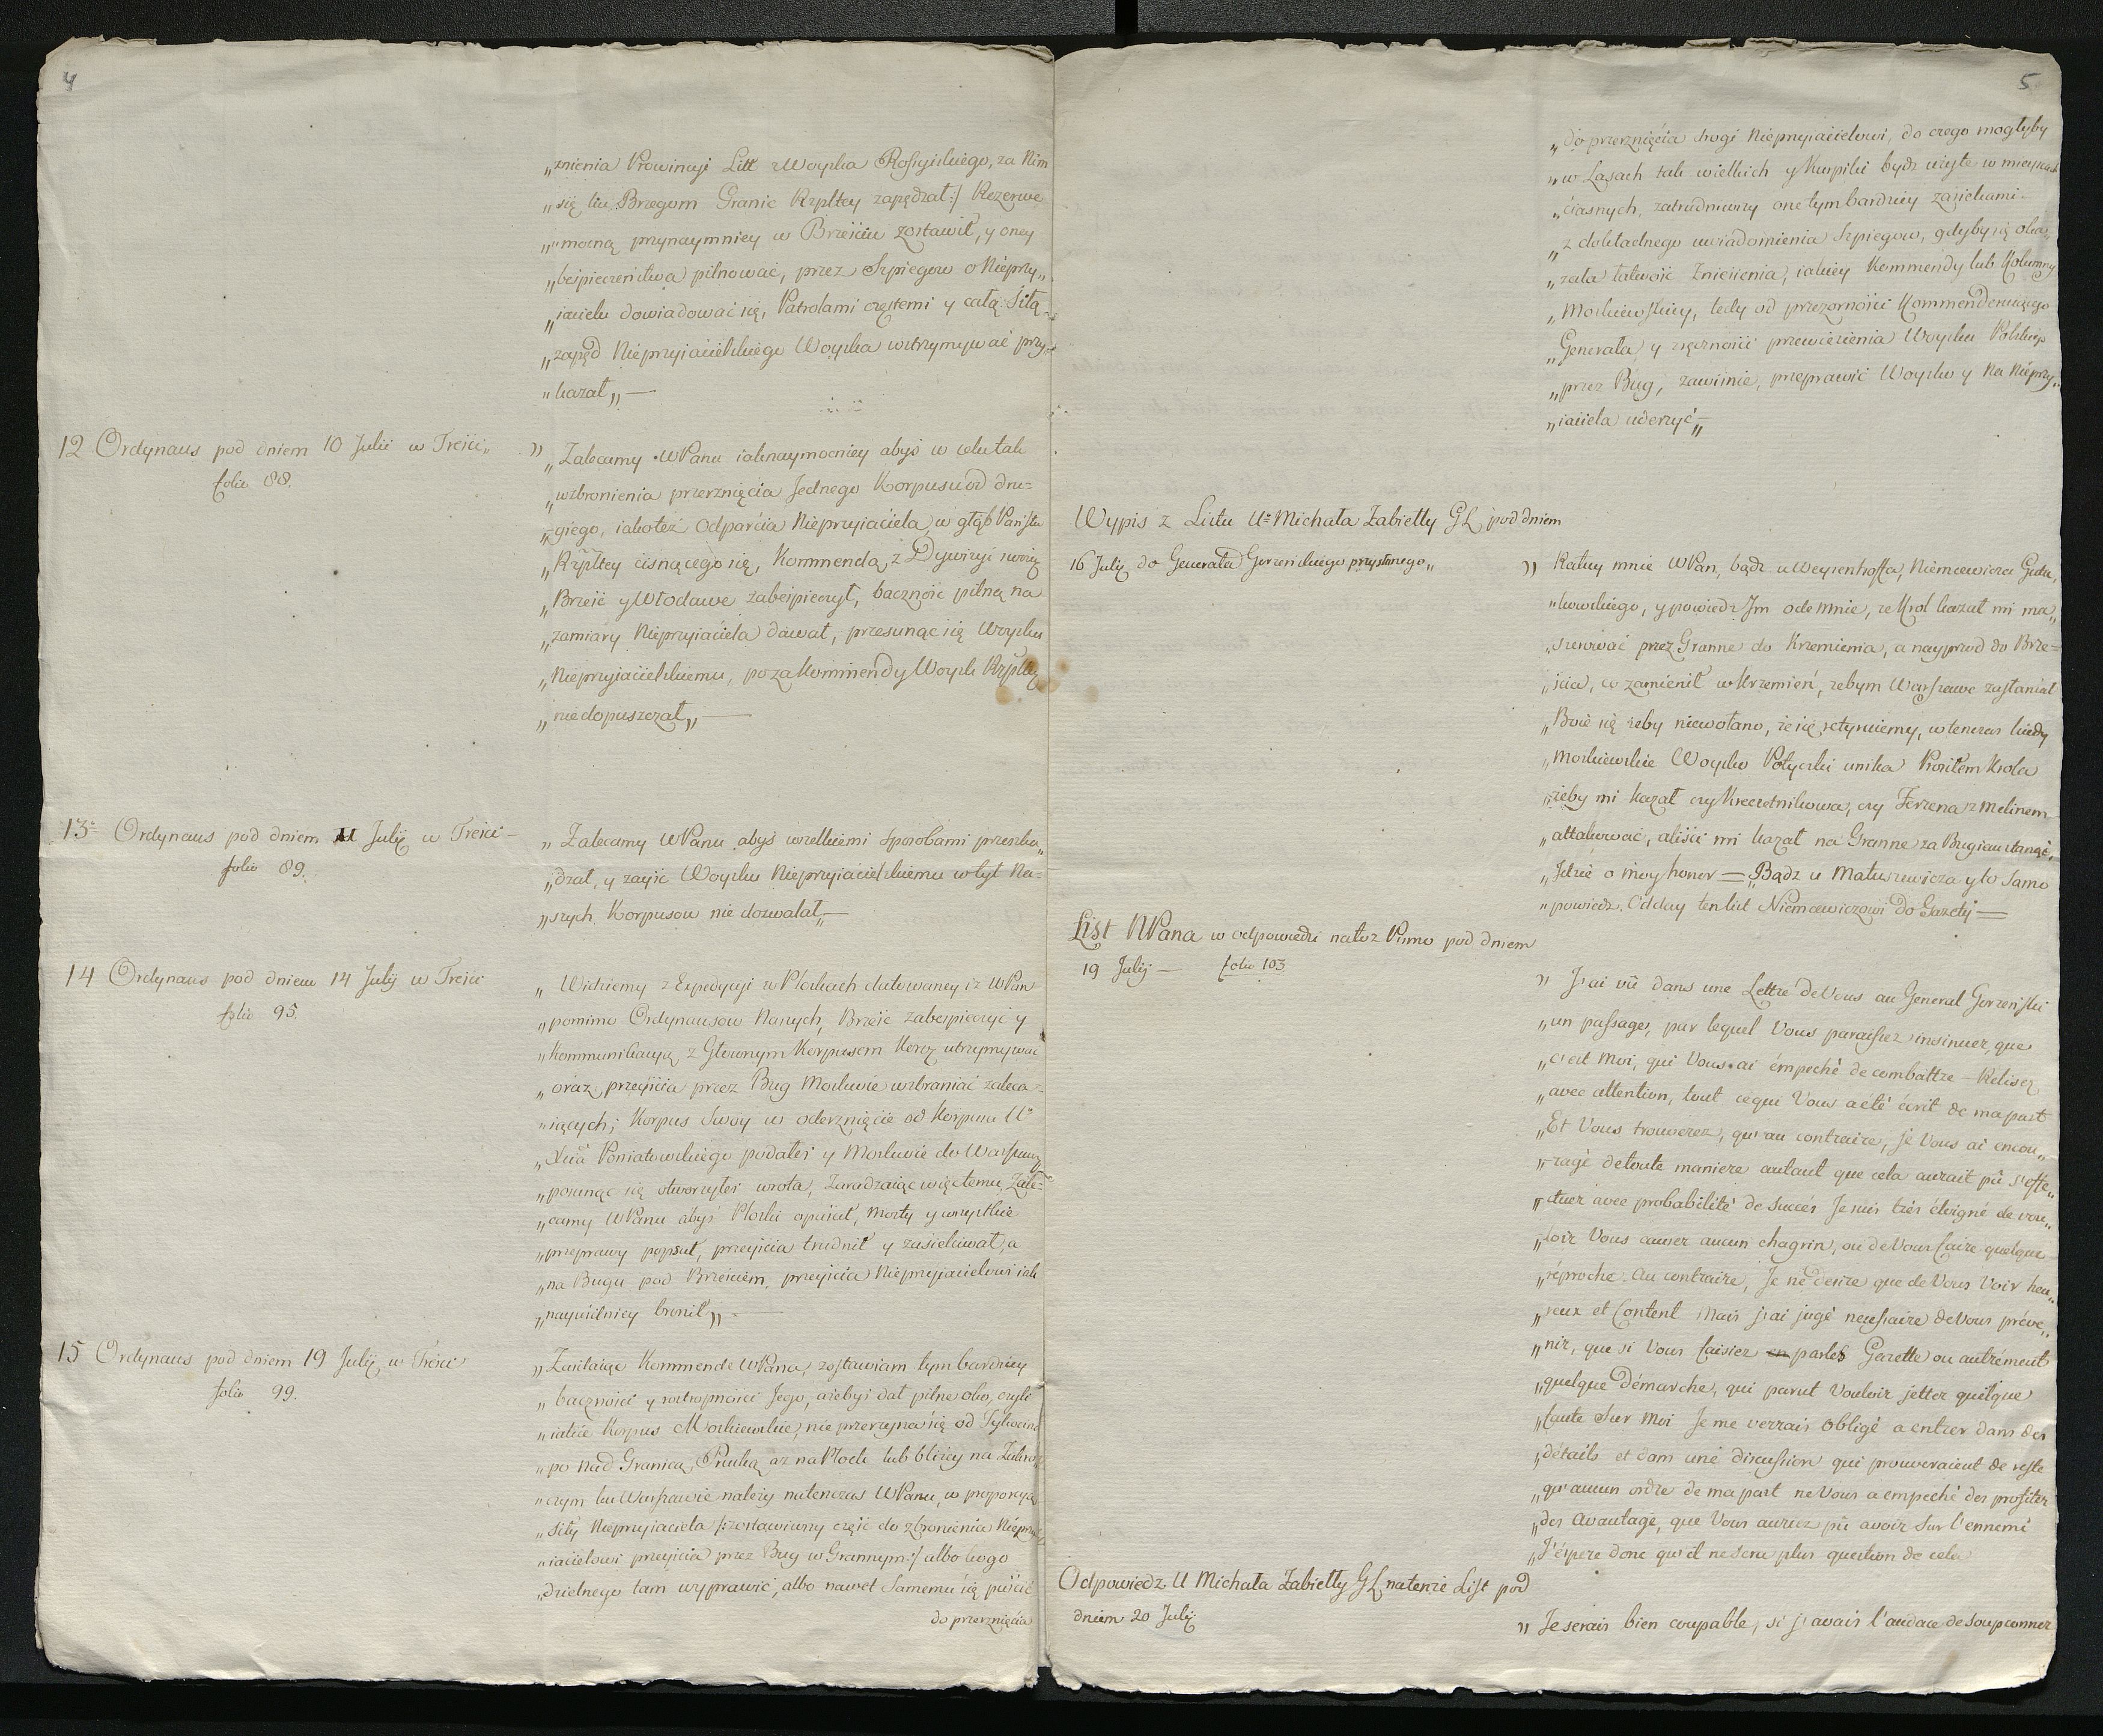 4
„znienia Prowincyi Litt z Woyska Rossyiskiego, za Nim
„się ku Brzegom Granic Rzpltey zapędzał:/ Rezerwę
„mocną przynaymniey w Brześciu zostawił, y oney
„beśpieczeństwa pilnować, przez Szpiegow o Nieprzy„
„iacielu dowiadować się, Patrolami częstemi y całą Siłą
„zapęd Nieprzyiacielskiego Woyska wstrzymywać przy„
„kazał„ —
12 Ordynans pod dniem 10 Julii w Treści„
folio 88.
„Zalecamy WPanu iaknaymocniey abyś w celu tak
„wzbronienia przerznięcia Jednego Korpusu od dru=
„giego, iakoteż Odparcia Nieprzyiaciela w głąb Państw
„Rzpltey cisnącego się, Kommendą z Dywizyi swoiey
„Brześć y Włodawę zabeśpieczył, baczność pilną na
„zamiary Nieprzyiaciela dawał, przesunąć się Woysku
„Nieprzyiacielskiemu, poza Kommendy Woysk Rzpltey
„niedopuszczał„ —
13 Ordynans pod dniem 11 Julij w Treści —
folio 89.
„Zalecamy WPanu abyś wszelkiemi Sposobami przeszka„
„dzał, y zayść Woysku Nieprzyiacielskiemu w tył Na=
„szych Korpusow nie dozwalał„ —
14 Ordynans pod dniem 14 Julij w Treści
folio 95.
„Widziemy z Expedycyi w Płoskach datowaney iż WPan
„pomimo Ordynansow Naszych, Brześć zabeśpieczyć y
„Kommunikacyą z Głownym Korpusem Koroy utrzymywać
„oraz przeyścia przez Bug Moskwie wzbraniać zaleca=
„iących; Korpus Swoy w oderznięcie od Korpusu Uo
„Xcia Poniatowskiego podałeś y Moskwie do Warszawy
„posunąć się otworzyłeś wrota, Zaradzaiąc więc temu, Zale=
„camy WPanu abyś Płoski opuścił, Mosty y wszystkie
„przeprawy popsuł, przeyścia trudnił y zasiekiwał, a
„na Bugu pod Brześciem, przeyścia Nieprzyiacielowi iak
„nayusilniey bronił„ —
15 Ordynans pod dniem 19 Julij w Treści
folio 99.
„Zasilaiąc Kommendę WPana, zostawiam tym bardziey
„baczności y roztropności Jego, ażebyś dał pilne oko, czyli
„iakie Korpus Moskiewskie, nie przerzyna się od Tykocina
„po nad Granicą Pruską aż na Płock lub bliżey na Zakro=
„czym ku Warszawie należy natenczas WPanu, w proporcyą
„Siły Nieprzyiaciela /:zostawiwszy część do zbronienia Nieprzy
„iacielowi przeyścia przez Bug w Grannym:/ albo kogo
„dzielnego tam wyprawić, albo nawet Samemu się puścić
do przerznięcia
5
„do przerznięcia drogi Nieprzyiacielowi, do czego mogłyby
„w Lasach tak wielkich y Kurpiki bydź użyte w mieyscach
„ciasnych, zatrudniwszy one tym bardziey zasiekami.
„z dokładnego uwiadomienia Szpiegow, gdyby się oka„
„zała łatwość Zniesienia, iakiey Kommendy lub Kolumny
„Moskiewskiey, tedy od przezorności Kommenderuiącego
„Generała, y zręczności przewiezienia Woyska Polskiego
„przez Bug, zawiśnie, przeprawić Woysko y Na Nieprzy„
„iaciela uderzyć„ —
Wypis z Listu Uo Michała Zabiełły GL pod dniem
16 Julij do Generała Gorzeńskiego przysłanego„
„Ratuy mnie WPan, bądź u Weysenhoffa, Niemcewicza Gutu„
„kowskiego, y powiedz Jm odemnie, że Krol kazał mi ma„
„szerować przez Granne do Krzemienia, a nayprzod do Brze=
„ścia, co zamienił w Krzemień, żebym Warszawę zasłaniał
„Boię się żeby niewołano, że się retyruiemy, wtenczas kiedy
„Moskiewskie Woysko Potyczki unika Prosiłem Krola
„żeby mi kazał czy Kreczetnikowa, czy Ferzena z Melinem
„attakować, aliści mi kazał na Granne za Bugiem stanąć,
„Idzie o moy honor — „Bądź u Matuszewicza y to Samo
„powiedz. Odday ten list Niemcewiczowi do Gazety —
List NPana w odpowiedzi na toż Pismo pod dniem
19 Julij — folio 103
„J'ai vû dans une Lettre de Vous au General Gorzeński
„un passage, par lequel Vous paraissez insinuer, que
„c'est Moi, qui Vous ai émpeché de combattre — Relisez
„avec attention, tout ce qui Vous a été écrit de ma part
„Et Vous trouverez, qu'au contraire, je Vous ai encou„
„ragé de toute maniere autant que cela aurait pû s'effe„
„ctuer avec probabilité de Succès Je suis très éloigné de vou„
„loir Vous causer aucun chagrin, ou de Vous faire quelque
„réproche. Au contraire, Je ne desire que de Vous Voir heu„
„reux et Content Mais j'ai jugé necessaire de Vous préve„
„nir, que si Vous faisiez par les Gazette ou autrément
„quelque Démarche, qui parut Vouloir jetter quelque
„faute Sur Moi Je me verrais Obligé a entrer dans des
„détails et dans une discussion qui prouveraient de reste
„qu'aucun ordre de ma part ne Vous a empeché des profiter
„des Avantage, que Vous auriez pû avoir Sur l'ennemi
„J'éspere donc qu'il ne sera plus question de cela
Odpowiedz U Michała Zabiełły GL na tenże List pod
dniem 20 Julij
„Je serais bien coupable, si j'avais l'audace de Soupconner